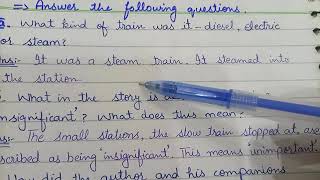 ⇒ Answer the following questions.
What kind of train was it – diesel, electric
or steam?
Ans:- It was a steam train. It steamed into
the station
What in the story is
insignificant'? What does this mean?
The small stations, the slow train stopped at, are
scribed as being 'insignificant'. This means 'unimportant'.
How did the author and his companions